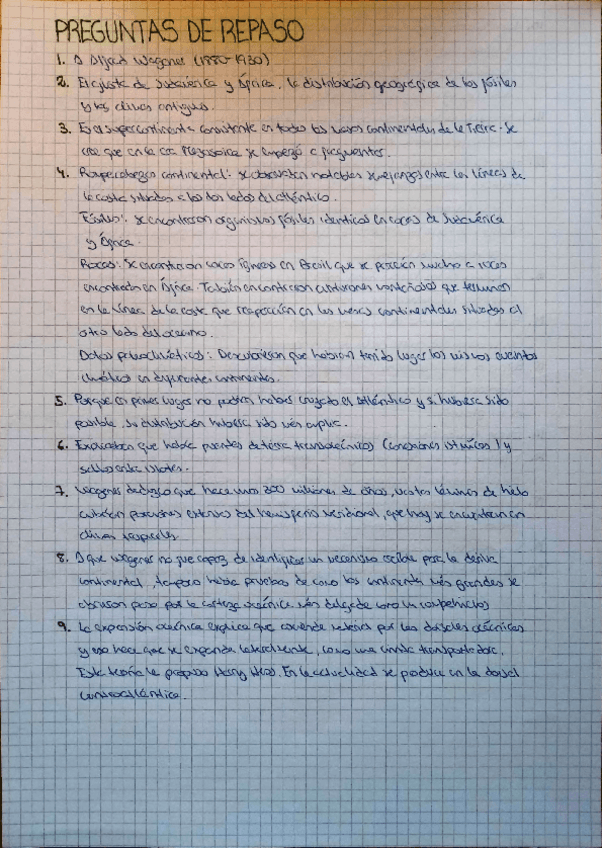 PREGUNTAS DE REPASO
1. A Alfred Wegener (1880-1930)
2. El ajuste de Sudamérica y África, la distribución geográfica de los fósiles
y los climas antiguos.
3. Es el supercontinente consistente en todas las masas continentales de la Tierra. Se
cree que en la era Mesozoica se empezó a fragmentar.
4. Rompecabezas continental: se observaban notables semejanzas entre las líneas de
la costa situadas a los dos lados del atlántico.
Fósiles: se encontraron organismos fósiles idénticos en rocas de Sudamérica
y África.
Rocas: Se encontraron rocas ígneas en Brasil que se parecían mucho a rocas
encontradas en África. También encontraron cinturones montañosos que terminan
en la línea de la costa que reaparecían en las masas continentales situadas al
otro lado del océano.
Datos paleoclimáticos: Descubrieron que habían tenido lugar los mismos eventos
climáticos en diferentes continentes.
5. Porque en primer lugar no podrían haber cruzado el Atlántico y si hubiera sido
posible, su distribución hubiera sido más amplia.
6. Explicaban que había puentes de tierra transoceánicos (conexiones ístmicas) y
saltos entre islotes.
7. Wegener dedujo que hace unos 300 millones de años, vastas láminas de hielo
cubrían porciones extensas del hemisferio meridional, que hoy se encuentran en
climas tropicales.
8. A que Wegener no fue capaz de identificar un mecanismo creíble para la deriva
continental, tampoco había pruebas de como los continentes más grandes se
abrieron paso por la corteza oceánica más delgada como un rompehielos
9. La expansión oceánica explica que asciende material por las dorsales oceánicas
y eso hace que se expanda lateralmente, como una cinta transportadora.
Esta teoría la propuso Harry Hess. En la actualidad se produce en la dorsal
centroatlántica.